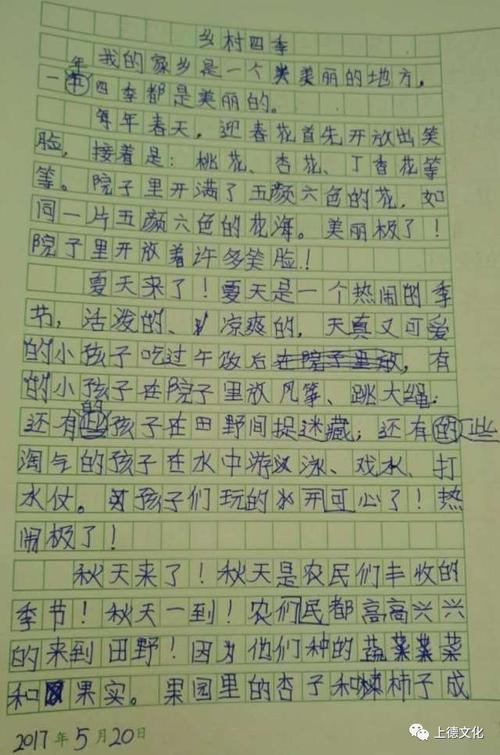 乡村四季
我的家乡是一个美丽的地方，
一年四季都是美丽的。
每年春天，迎春花首先开放出笑
脸，接着是：桃花、杏花、丁香花等
等。院子里开满了五颜六色的花，如
同一片五颜六色的花海。美丽极了！
院子里开放着许多笑脸！
夏天来了！夏天是一个热闹的季
节，活泼的、凉爽的，天真又可爱
的小孩子吃过午饭后在院子里放，有
的小孩子在院子里放风筝、跳大绳；
还有的孩子在田野间捉迷藏；还有的一些
淘气的孩子在水中游泳、戏水、打
水仗。孩子们玩的开可心了！热
闹极了！
秋天来了！秋天是农民们丰收的
季节！秋天一到！农们民都高高兴兴
的来到田野！因为他们种的蔬菜
和果实。果园里的杏子和柿子成
2017年5月20日
上德文化